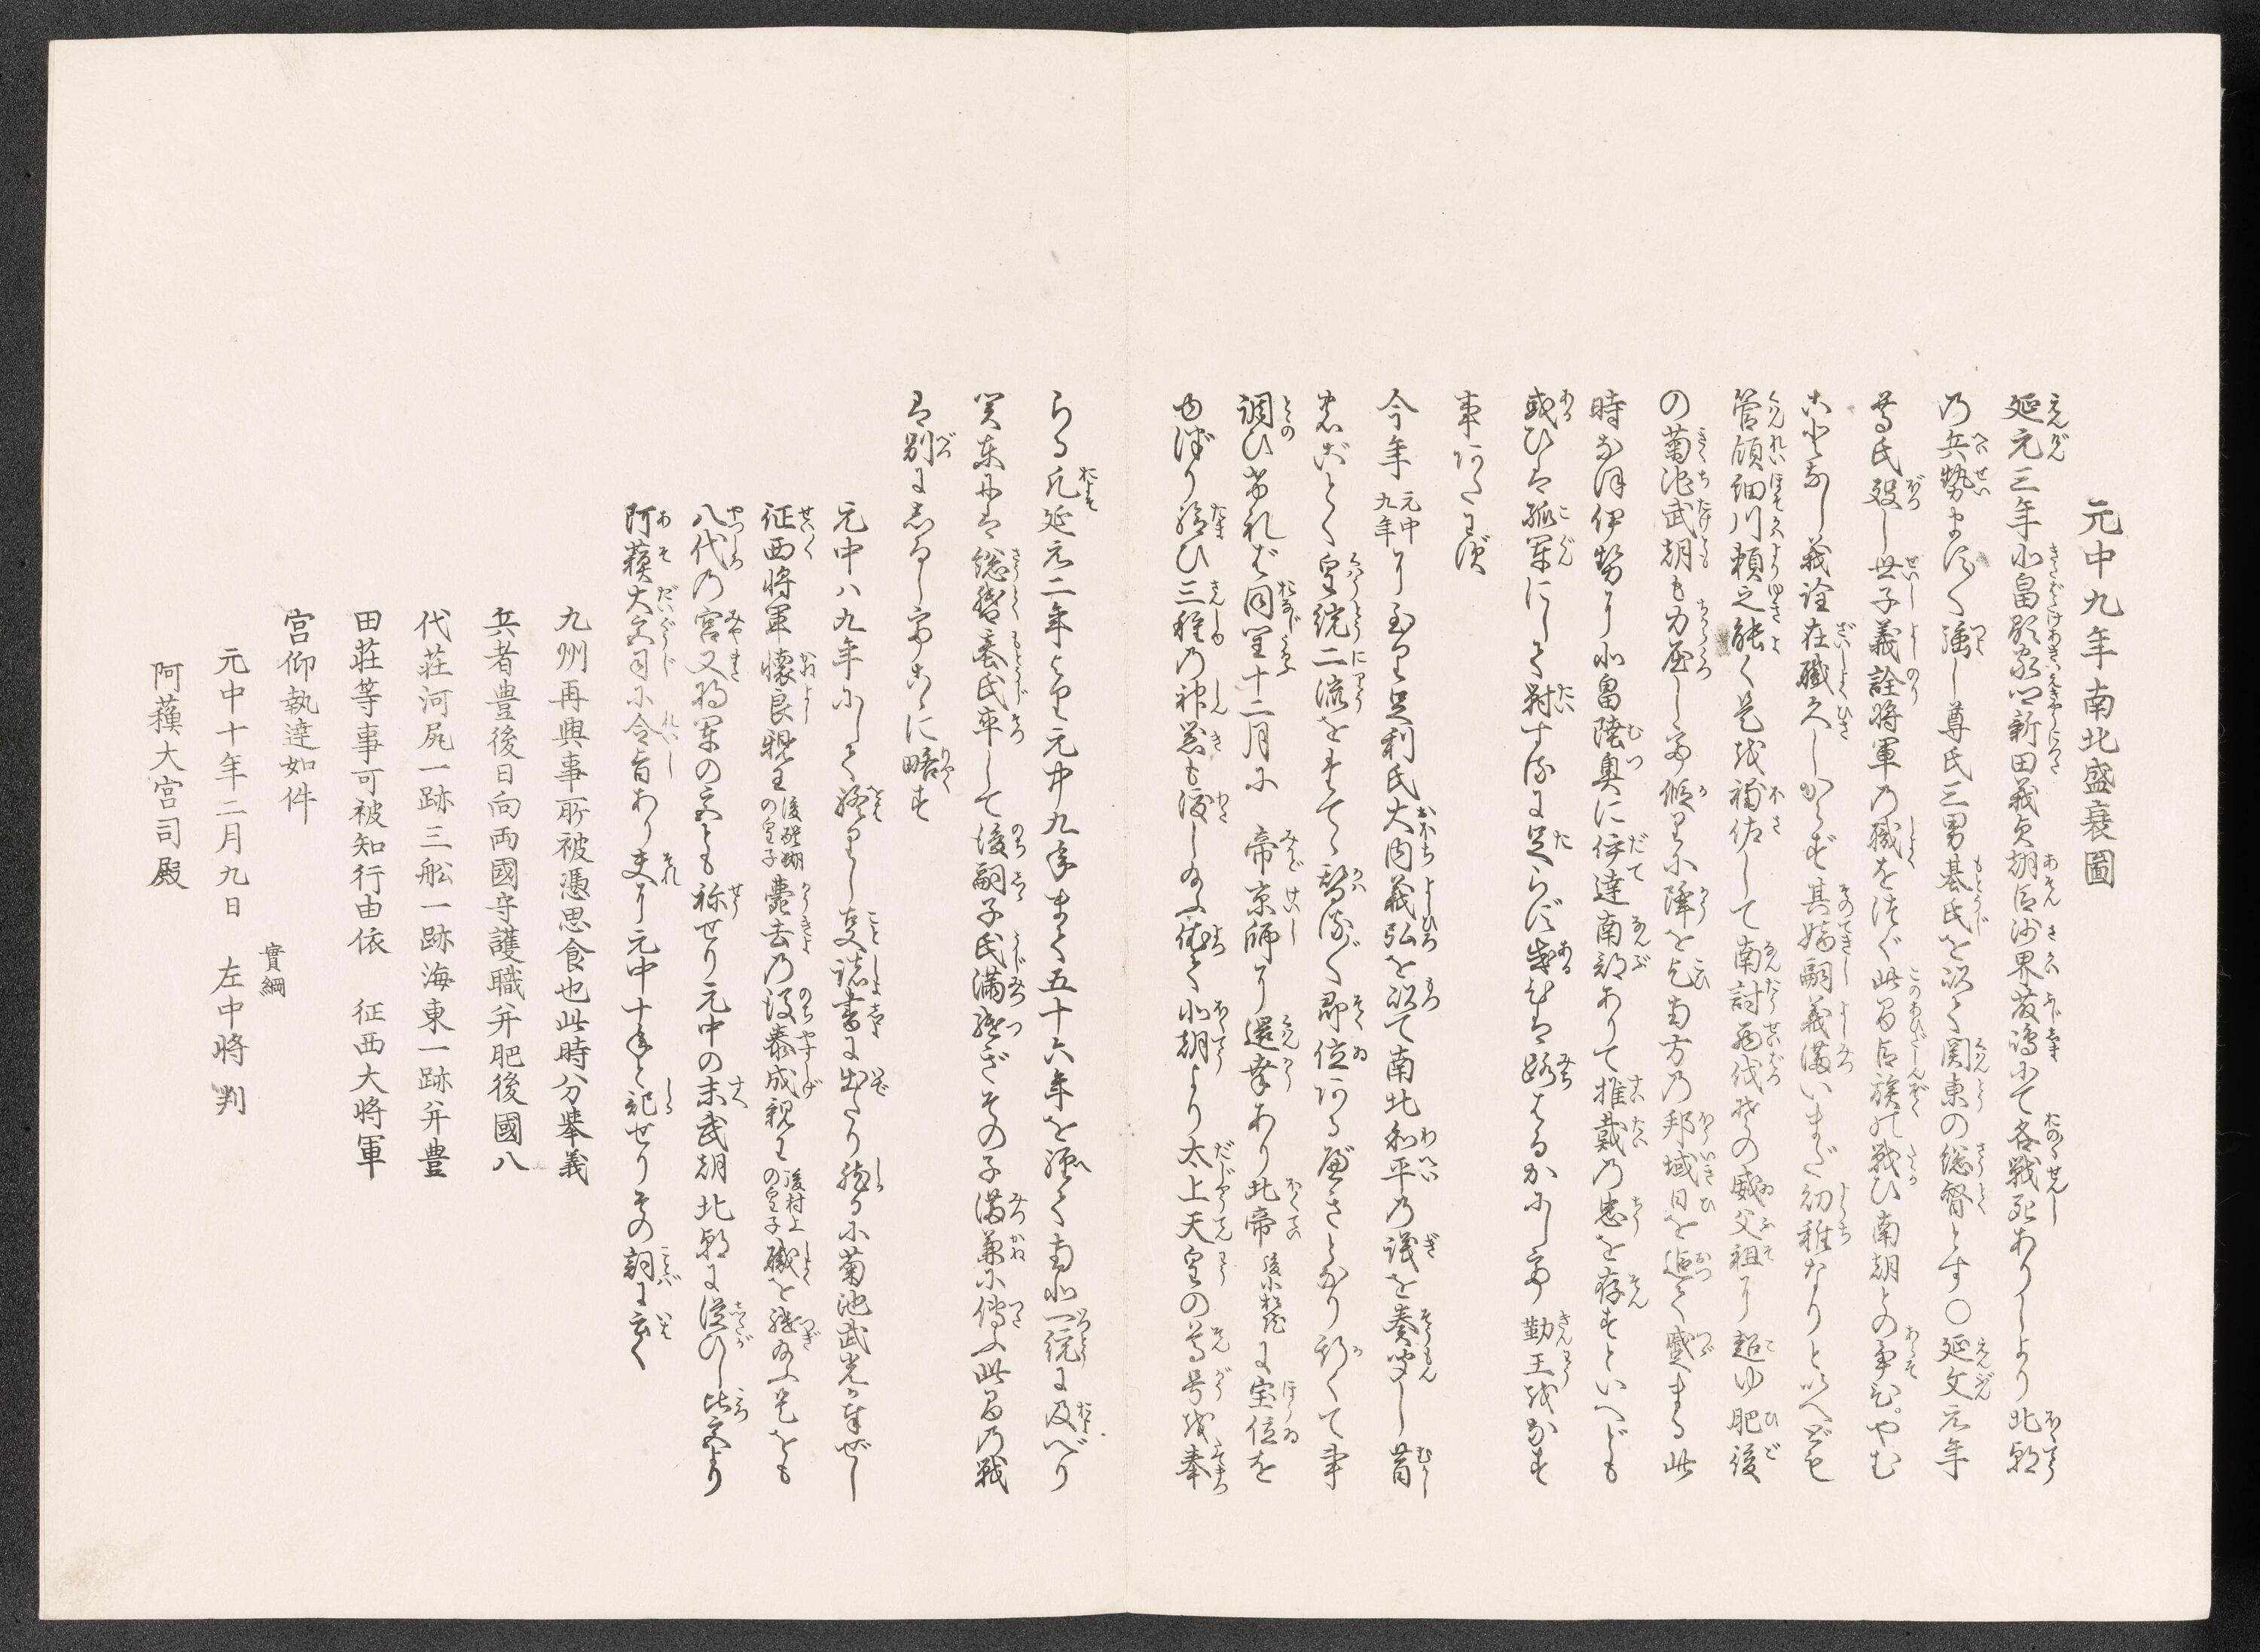 元中九年南北盛衰圖
延元三年北畠顕家卿新田義貞朝臣沙界藤嶋にて各戦死ありしより北朝
乃兵勢ますく強し尊氏三男基氏を以て関東の総督とす〇延文元年
尊氏歿し世子義詮将軍乃職をつぐ此間臣族の戦ひ南朝との争ひやむ
ことなし義詮在職久しからず其嫡嗣義満いまだ幼稚なりといへども
管領細川頼之能く是を補佐して南討西伐その威父祖に超ゆ肥後
の菊池武朝も力屈して仮に降を乞南方の邦域日を追て蹙まる此
時なほ伊勢に北畠陸奥に伊達南部ありて推戴乃忠を存すといへども
或ひは孤軍にして対するに足らず或ひは路はるかにして勤王をなす
事あたはず
今年元中九年に至り足利氏大内義弘を以て南北和平乃議を奏聞し昔
のごとく皇統二流をたてゝ替るがく即位ある可きとなり斯くて事
調ひければ同年十二月に 帝京師に還幸あり北帝後小松院に宝位を
御譲り給ひ三種乃神器も渡し給ふ依て北朝より太上天皇の尊号を奉
らる凡延元二年より元中九年まで五十六年を経て南北一統に及べり
関東には総督基氏卒して後嗣子氏満継ぎその子満兼に傳ふ此間乃戦
は別にしるし有ゆゑこゝに略す
元中八九年にして終りし事諸書に出たり然るに菊池武光が奉ぜし
征西将軍懐良親王後醍醐の皇子薨去乃後泰成親王後村上の皇子職を継給ふ是をも
八代乃宮又将軍の宮とも称せり元中の末武朝北朝に従ひし比宮より
阿蘓大宮司に令旨あり夫に元中十年と記せりその詞に云く
九州再興事所被憑思食也此時分挙義
兵者豊後日向両國守護職并肥後國八
代荘河尻一跡三舩一跡海東一跡并豊
田荘等事可被知行由依 征西大将軍
宮仰執達如件
實綱
元中十年二月九日 左中将 判
阿蘓大宮司殿